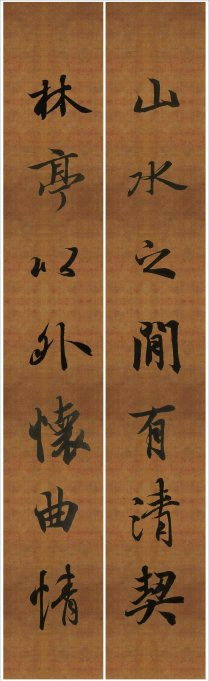 山水之閒有清契
林亭以外懷曲情